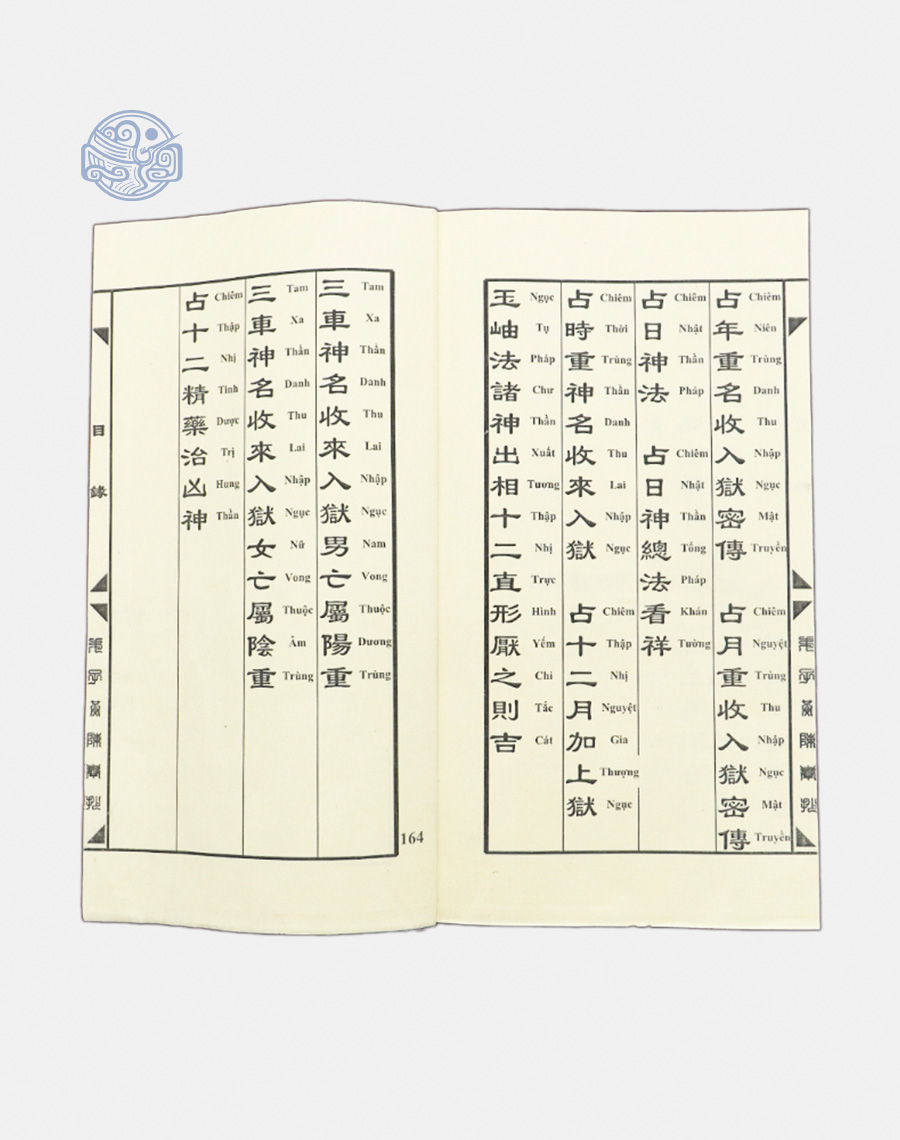 占年重名收入獄密傳 占月重收入獄密傳
Chiêm Niên Trùng Danh Thu Nhập Ngục Mật Truyền Chiêm Nguyệt Trùng Thu Nhập Ngục Mật Truyền
占日神法 占日神總法看祥
Chiêm Nhật Thần Pháp Chiêm Nhật Thần Tổng Pháp Khán Tường
占時重神名收來入獄 占十二月加上獄
Chiêm Thời Trùng Thần Danh Thu Lai Nhập Ngục Chiêm Thập Nhị Nguyệt Gia Thượng Ngục
玉岫法諸神出相十二直形厭之則吉
Ngọc Tụ Pháp Chư Thần Xuất Tương Thập Nhị Trực Hình Yếm Chi Tắc Cát
三車神名收來入獄男亡屬陽重
Tam Xa Thần Danh Thu Lai Nhập Ngục Nam Vong Thuộc Dương Trùng
三車神名收來入獄女亡屬陰重
Tam Xa Thần Danh Thu Lai Nhập Ngục Nữ Vong Thuộc Âm Trùng
占十二精藥治凶神
Chiêm Thập Nhị Tinh Dược Trị Hung Thần
目錄
164